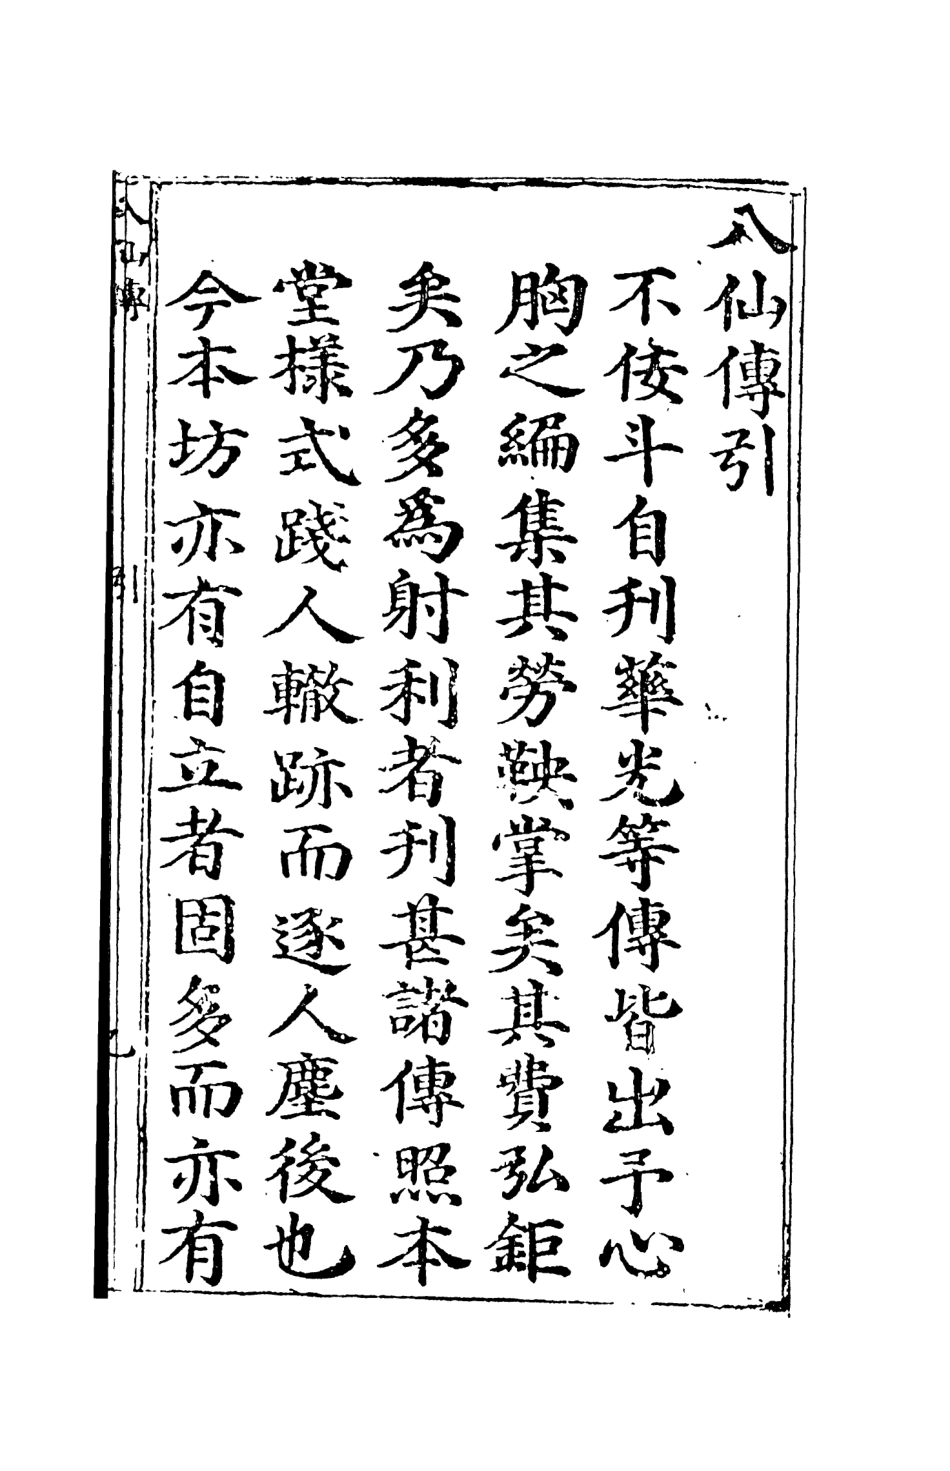 八仙傳引
不佞斗自刊華光等傳皆出予心
胸之編集其勞鞅掌矣其費弘鉅
矣乃多為射利者刊甚諸傳照本
堂樣式踐人轍跡而逐人塵後也
今本坊亦有自立者固多而亦有
八仙傳
引
乙